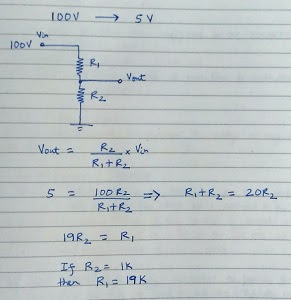 100V → 5V
Vin
100V
R1
Vout
R2
Vout = R2 / R1+R2 × Vin
5 = 100R2 / R1+R2 ⇒ R1+R2 = 20R2
19R2 = R1
If R2 = 1K
then R1 = 19K